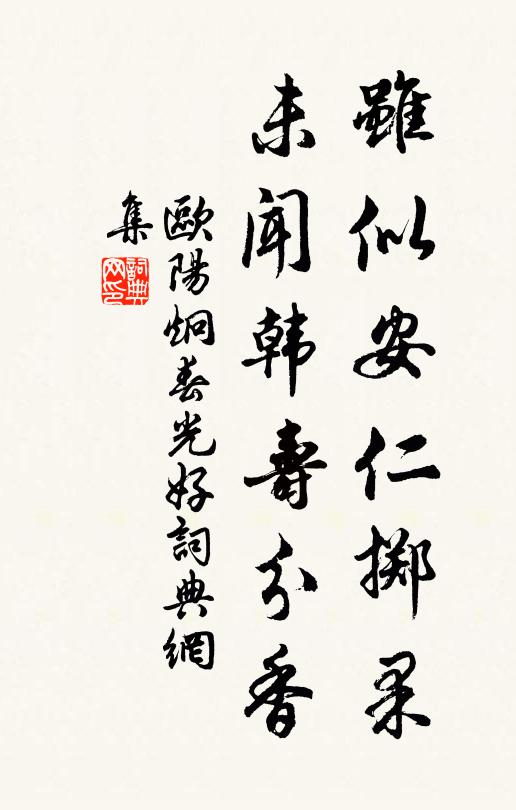 雖似安仁擲果
未聞韩壽分香
歐陽炯春光好詞典網
集
詞典
网印